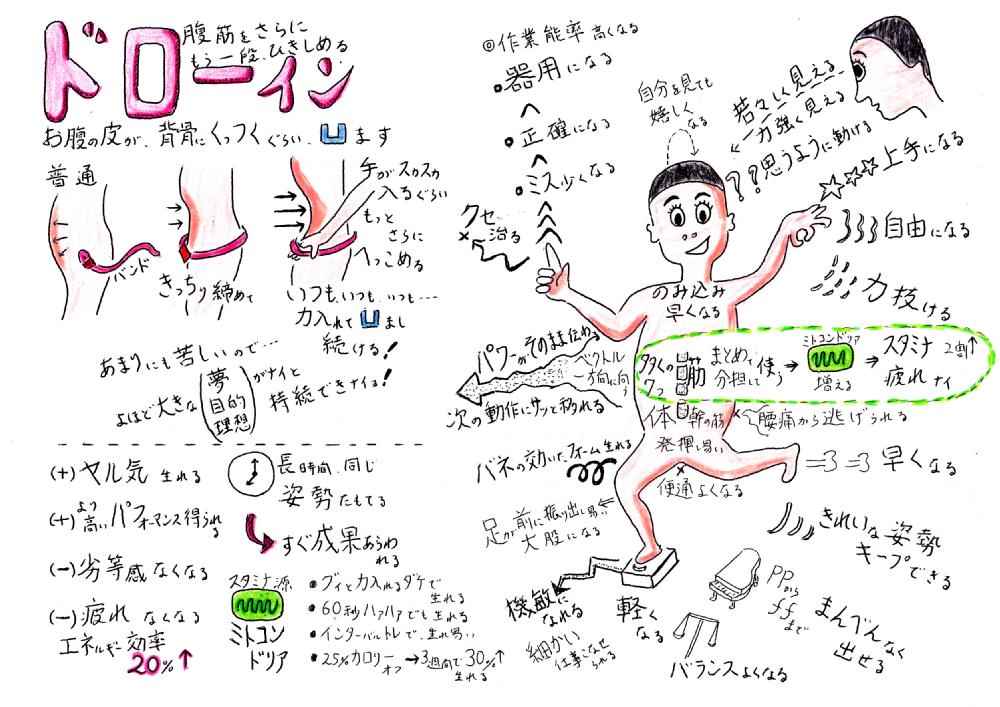 ドローイン
腹筋をさらに
もう一段、ひきしめる
お腹の皮が、背骨にくっつくぐらい、凹ます
普通
バンド
きっちり締めて
手がスカスカ
入るぐらい
もっと
さらに
へっこめる
いつも、いつも、いつも…
力入れて凹まし
続ける!
あまりにも苦しいので…
よほど大きな
夢
目的
理想
がナイと
持続できナイョ!
(+)ヤル気 生れる
(+)より高いパフォーマンス得られる
(-)劣等感なくなる
(-)疲れ なくなる
エネルギー効率
20%↑
長時間、同じ
姿勢たもてる
すぐ成果あらわれる
スタミナ源
ミトコンドリア
•グイと力入れるダケで生れる
•60秒ハァハァでも生れる
•インターバルトレで、生れ易い
•25%カロリーオフ→3週間で30%↑生れる
◎作業能率高くなる
•器用になる
•正確になる
•ミス少くなる
クセ
治る
自分を見ても
嬉しく
なる
若々しく見える
力強く見える
思うように動ける
??
上手になる
自由になる
力抜ける
のみ込み
早くなる
パワーがそのまま伝わる
ベクトル
一方向に向う
次の動作にサッと移れる
多くの
7つ
筋
まとめて
分担して
使う
→
ミトコンドリア
増える
⇒
スタミナ 2割↑
疲れナイ
体幹の筋
発揮し易い
腰痛から逃げられる
バネの効いたフォーム生れる
便通よくなる
早くなる
足が前に振り出し易い
大股になる
きれいな姿勢
キープできる
機敏に
なれる
細かい
仕事こなせられる
軽く
なる
ppから
ffまで
まんべんなく
出せる
バランスよくなる